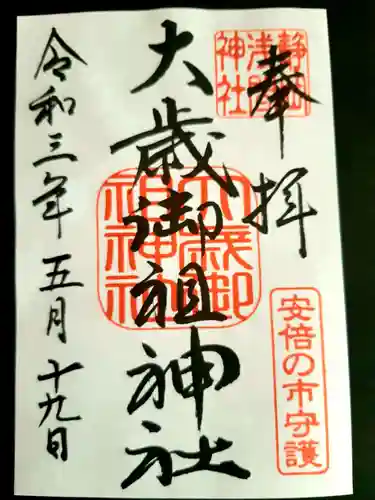 奉拝
静岡浅間神社
安倍の市守護
大歳御祖神社
大歳御祖神社
令和三年五月十九日